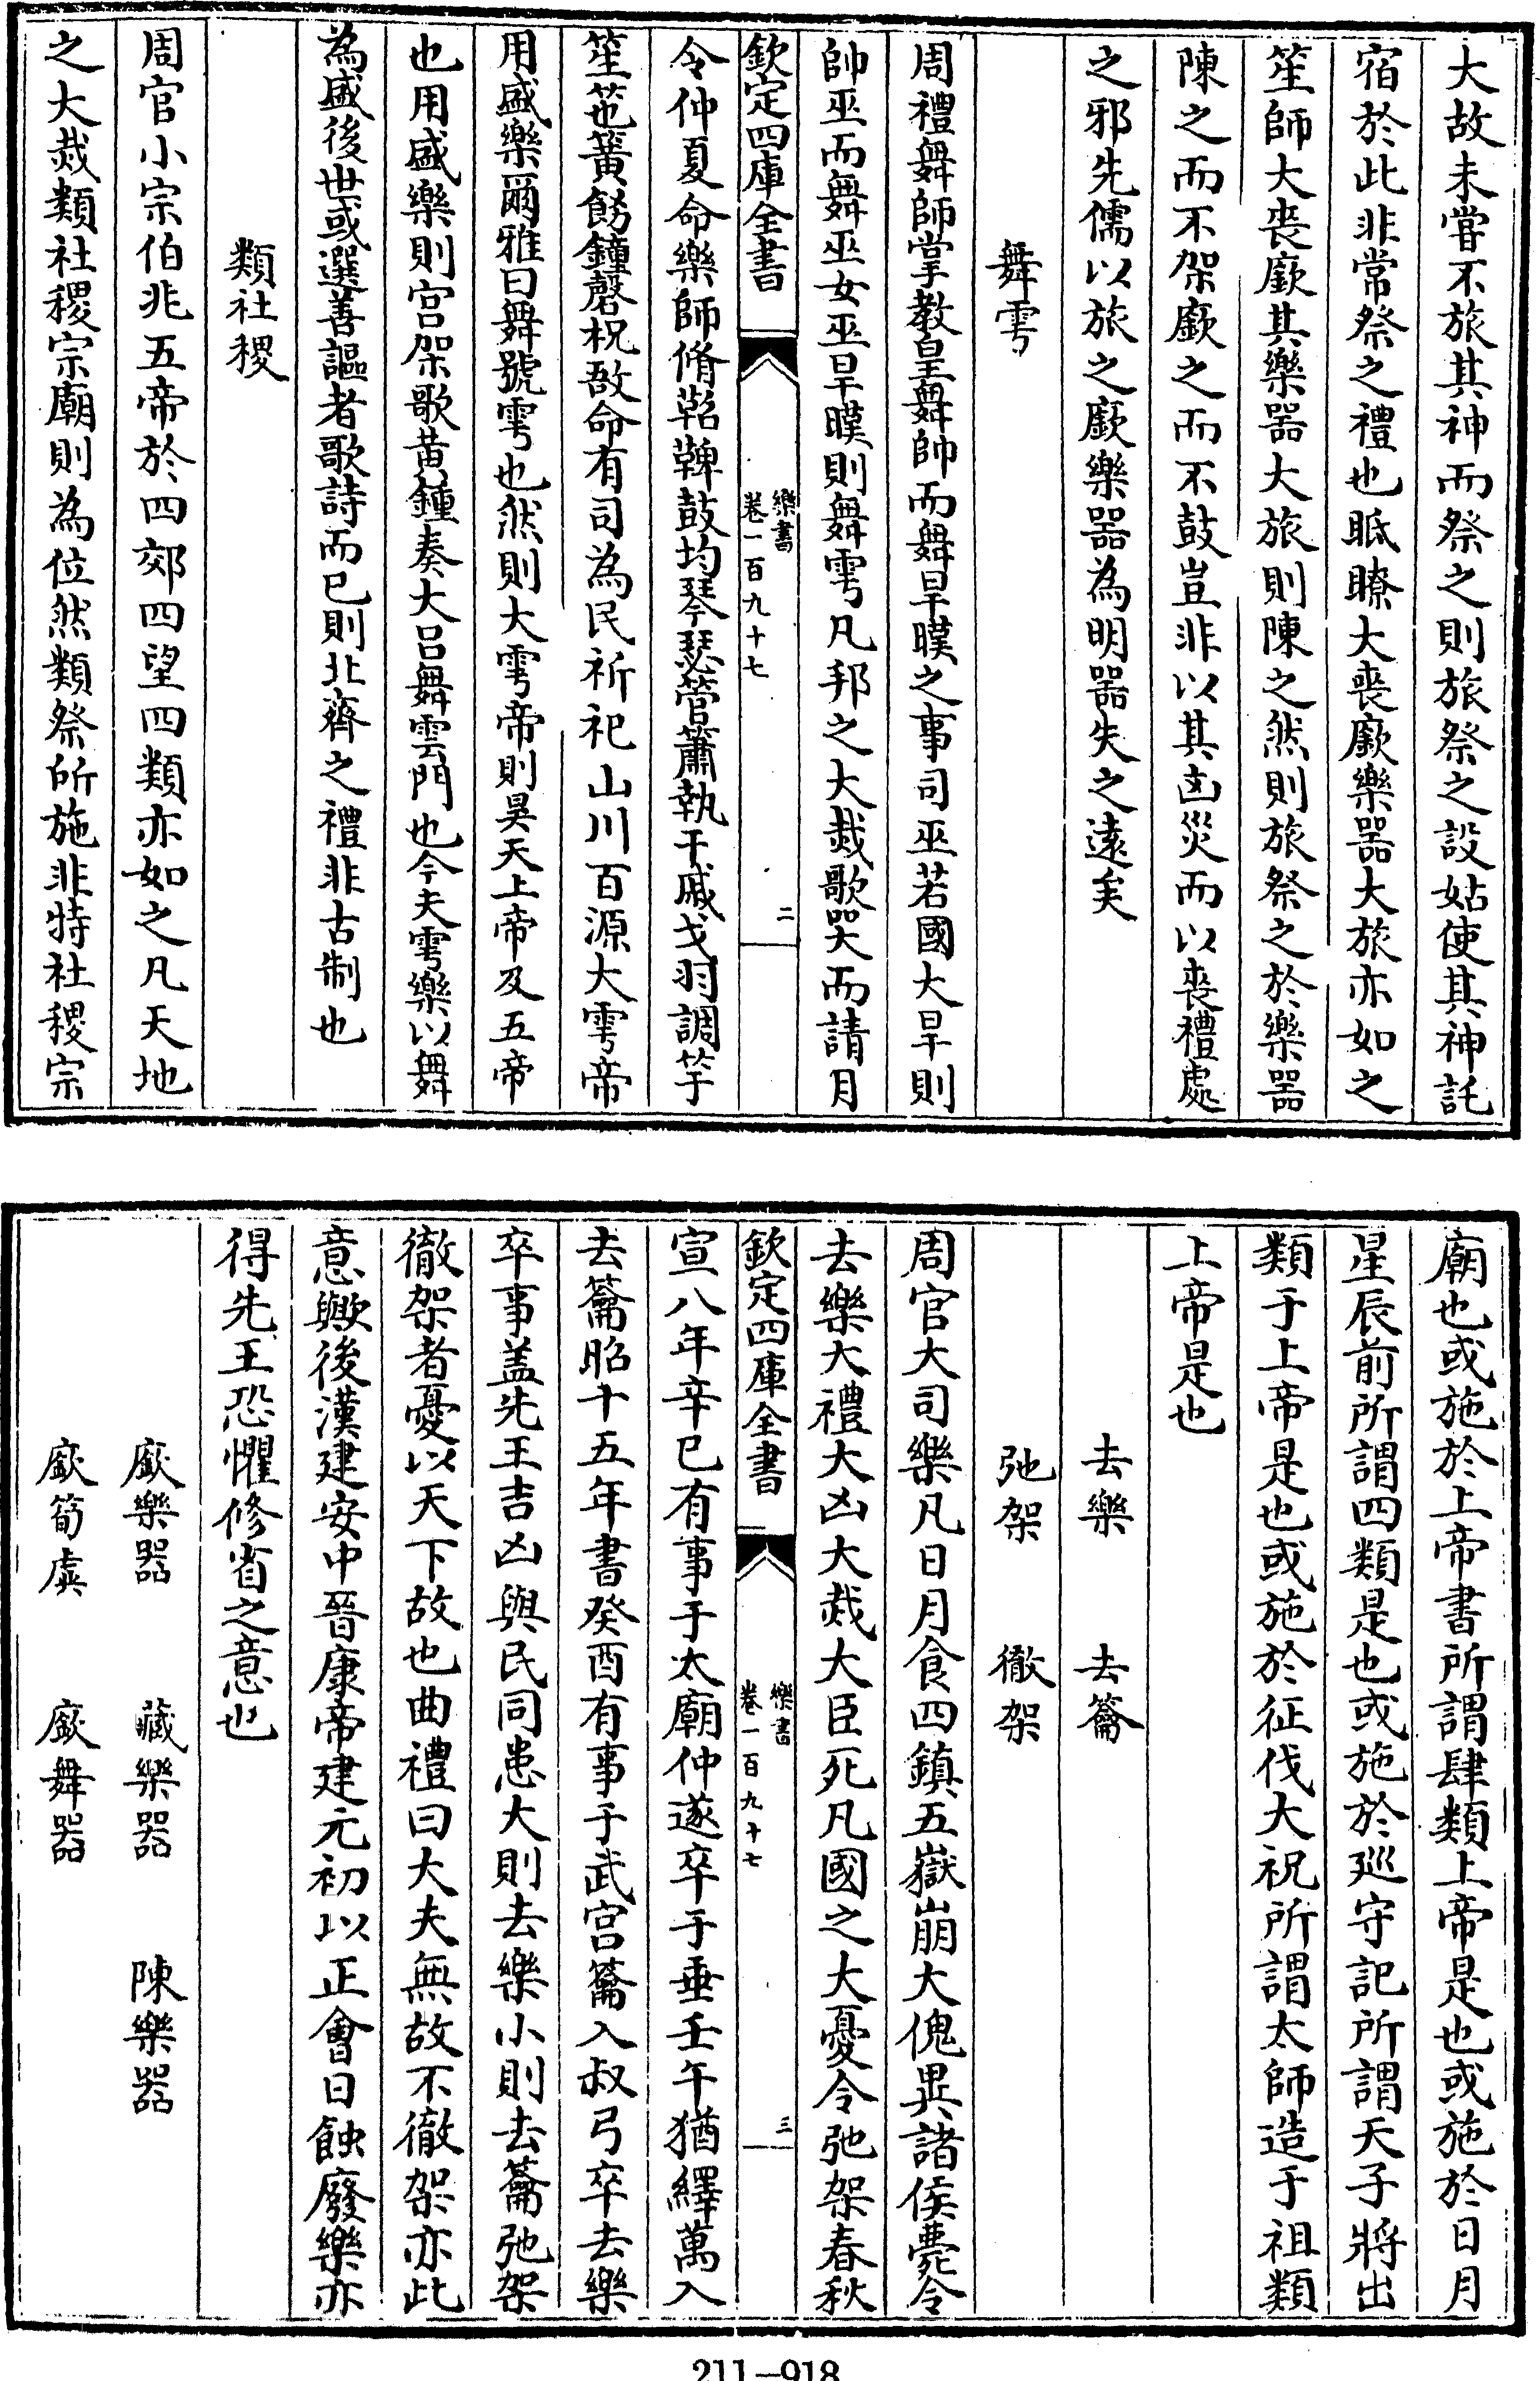 大故未嘗不旅其神而祭之則旅祭之設姑使其神託
宿於此非常祭之禮也眡瞭大喪廞樂器大旅亦如之
笙師大喪廞其樂器大旅則陳之然則旅祭之於樂器
陳之而不架廞之而不鼓豈非以其凶災而以喪禮處
之邪先儒以旅之廞樂器為明器失之遠矣
舞雩
周禮舞師掌教皇舞帥而舞旱暵之事司巫若國大旱則
帥巫而舞巫女巫旱暵則舞雩凡邦之大烖歌哭而請月
欽定四庫全書
樂書
卷一百九十七
二
令仲夏命樂師脩鞀鞞鼓均琴瑟管簫執干戚戈羽調竽
笙竾簧飭鐘磬柷敔命有司為民祈祀山川百源大雩帝
用盛樂爾雅曰舞號雩也然則大雩帝則昊天上帝及五帝
也用盛樂則宫架歌黄鍾奏大吕舞雲門也今夫雩樂以舞
為盛後世或選善謳者歌詩而已則北齊之禮非古制也
類社稷
周官小宗伯兆五帝於四郊四望四類亦如之凡天地
之大烖類社稷宗廟則為位然類祭所施非特社稷宗
廟也或施於上帝書所謂肆類上帝是也或施於日月
星辰前所謂四類是也或施於廵守記所謂天子將出
類于上帝是也或施於征伐大祝所謂太師造于祖類
上帝是也
去樂 去籥
弛架 徹架
周官大司樂凡日月食四鎮五嶽崩大傀異諸侯薨令
去樂大禮大凶大烖大臣死凡國之大憂令弛架春秋
欽定四庫全書
樂書
卷一百九十七
三
宣八年辛巳有事于太廟仲遂卒于垂壬午猶繹萬入
去籥昭十五年書癸酉有事于武宫籥入叔弓卒去樂
卒事盖先王吉凶與民同患大則去樂小則去籥弛架
徹架者憂以天下故也曲禮曰大夫無故不徹架亦此
意歟後漢建安中晉康帝建元初以正會日蝕廢樂亦
得先王恐懼修省之意也
廞樂器 藏樂器 陳樂器
廞筍虡 廞舞器
211—918